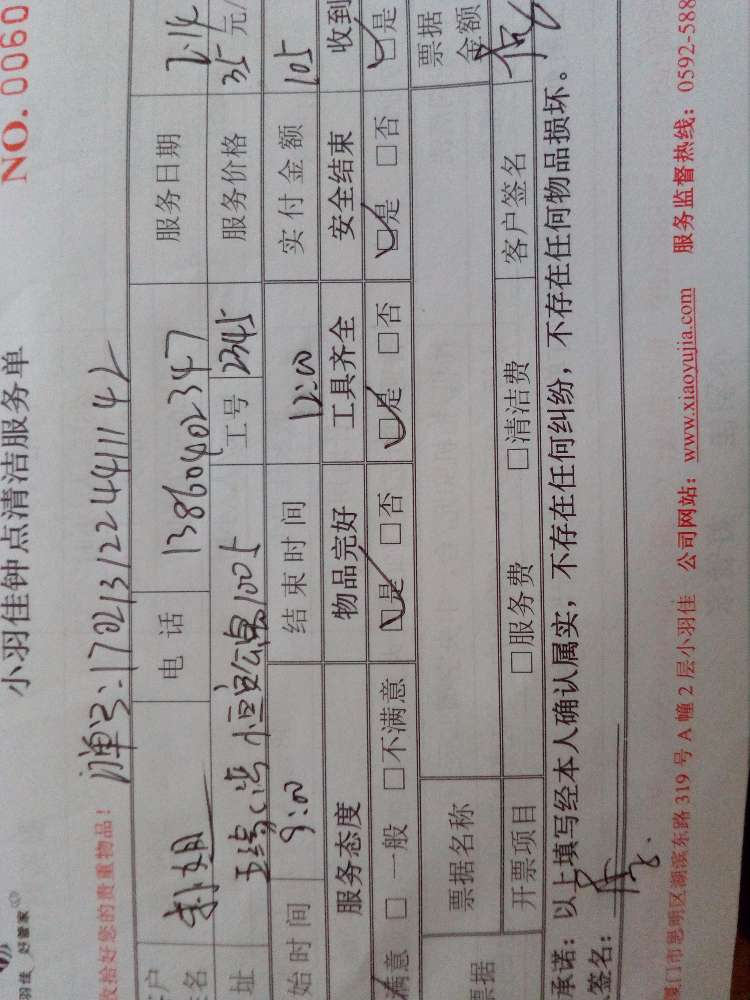 羽佳 好管家
小羽佳钟点清洁服务单
NO. 0060
收拾好您的贵重物品！
单号：1702131224411142
电话 13860402347 服务日期 2.14
址 1005 工号 2345 服务价格 35 元/
始时间 9:00 结束时间 12:00 实付金额 105
服务态度 物品完好 工具齐全 安全结束 收到
满意 □ 一般 □不满意 □是 □否 □是 □否 □是 □否 □是
票据 票据名称 票据金额
开票项目 □服务费 □清洁费 客户签名
承诺：以上填写经本人确认属实，不存在任何纠纷，不存在任何物品损坏。
签名：
厦门市思明区湖滨东路 319 号 A 幢 2 层小羽佳 公司网站：www.xiaoyujia.com 服务监督热线：0592-588